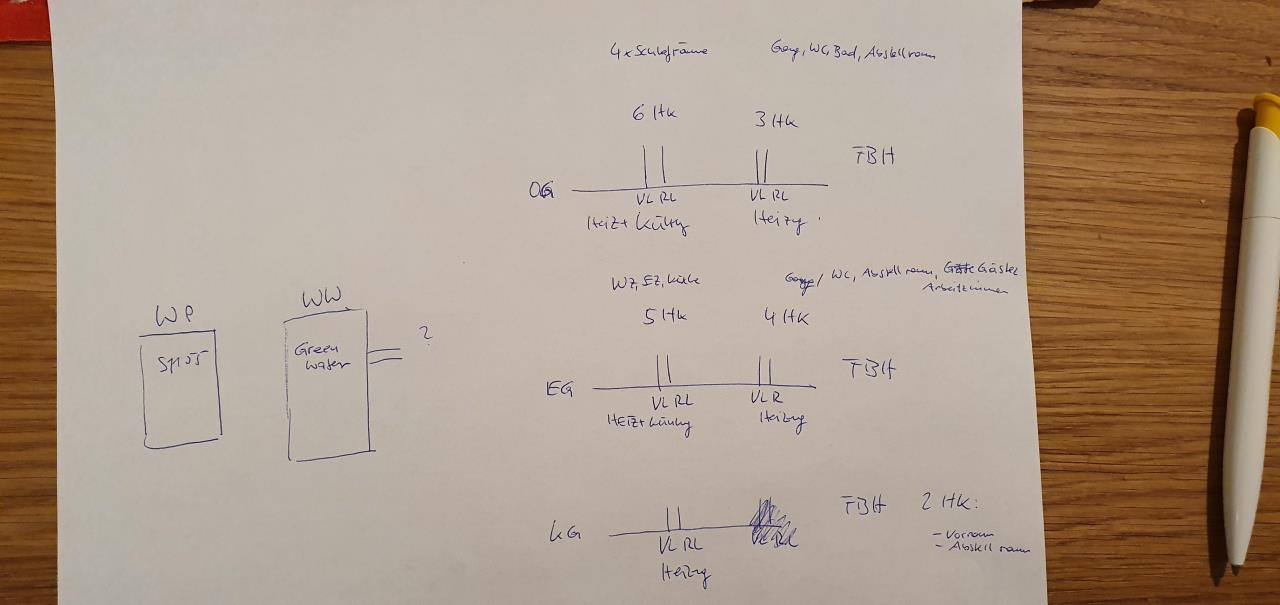 4x Schlafräume
Gang, WC, Bad, Abstellraum
6 HK
3 HK
FBH
OG
VL RL
VL RL
Heiz+ Kühlg
Heizg
WZ, EZ, Küche
Gang, WC, Abstellraum, Gäste
Arbeitzimmer
5 HK
4 HK
FBH
EG
VL RL
VL R
HEIZ+ Kühlg
Heizg
WP
SM 55
WW
Green
Water
?
KG
VL RL
Heizg
FBH 2 HK:
- Vorraum
- Abstellraum